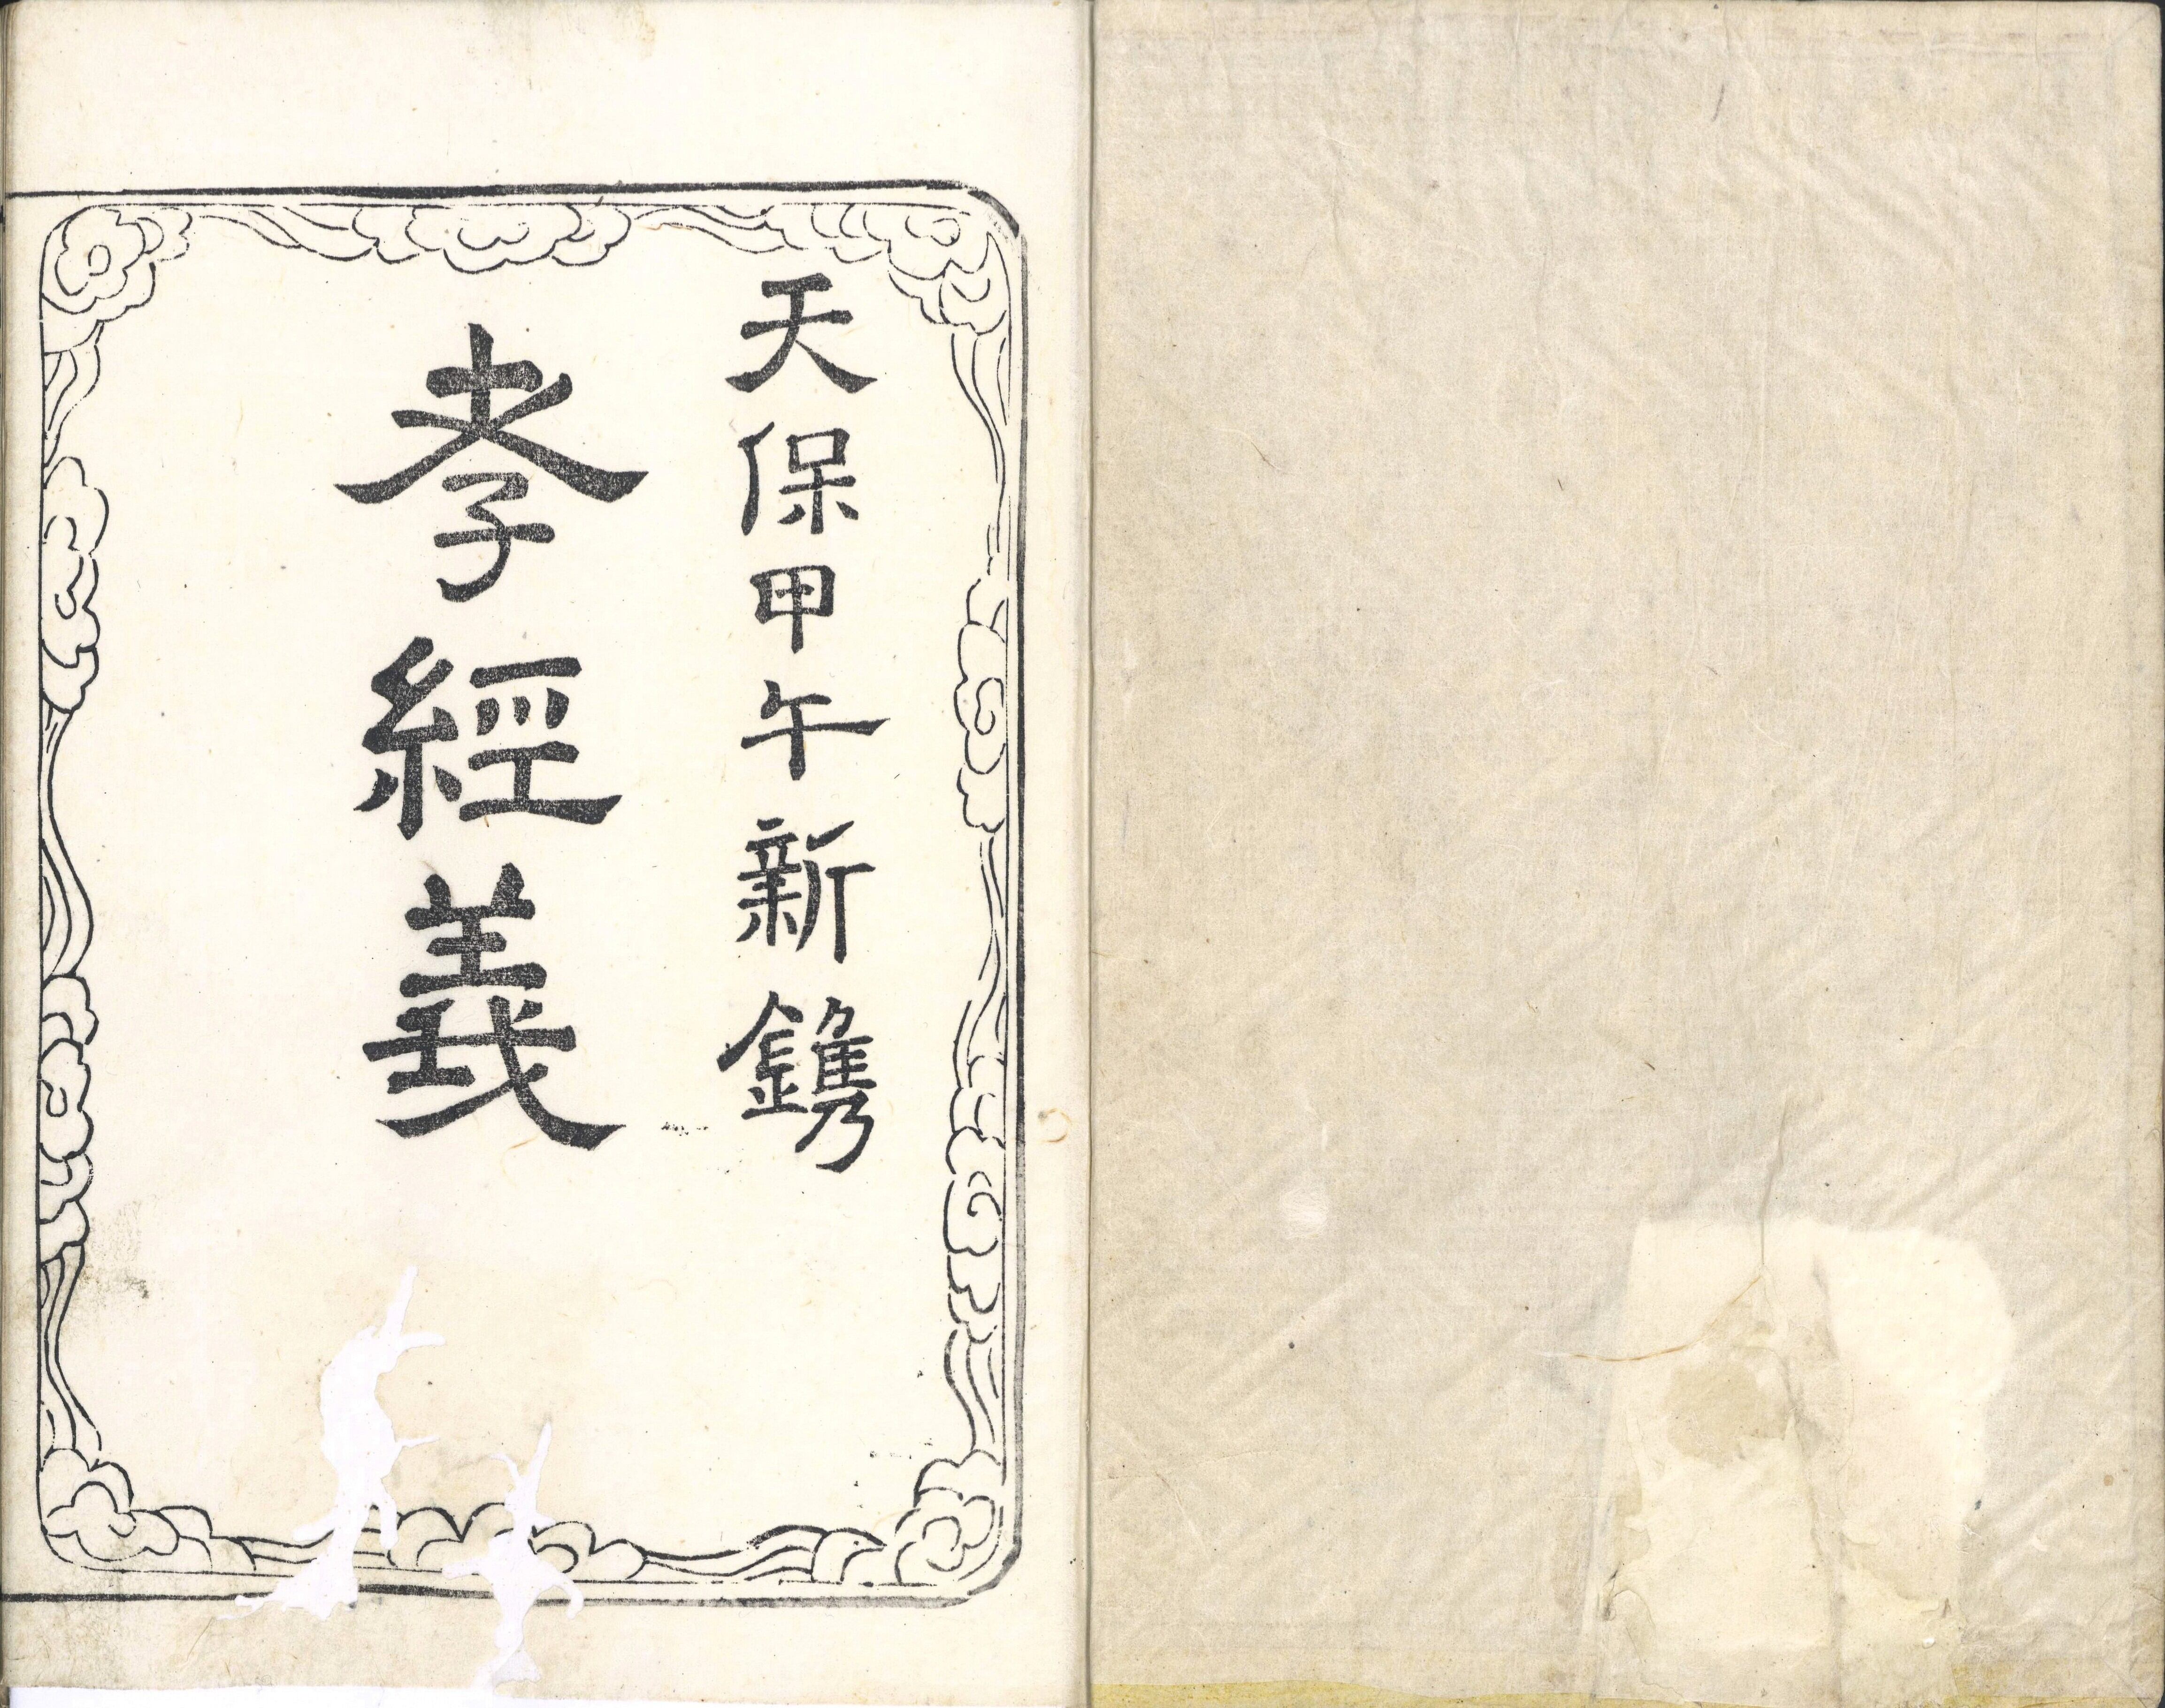 天保甲午新鐫
孝經義